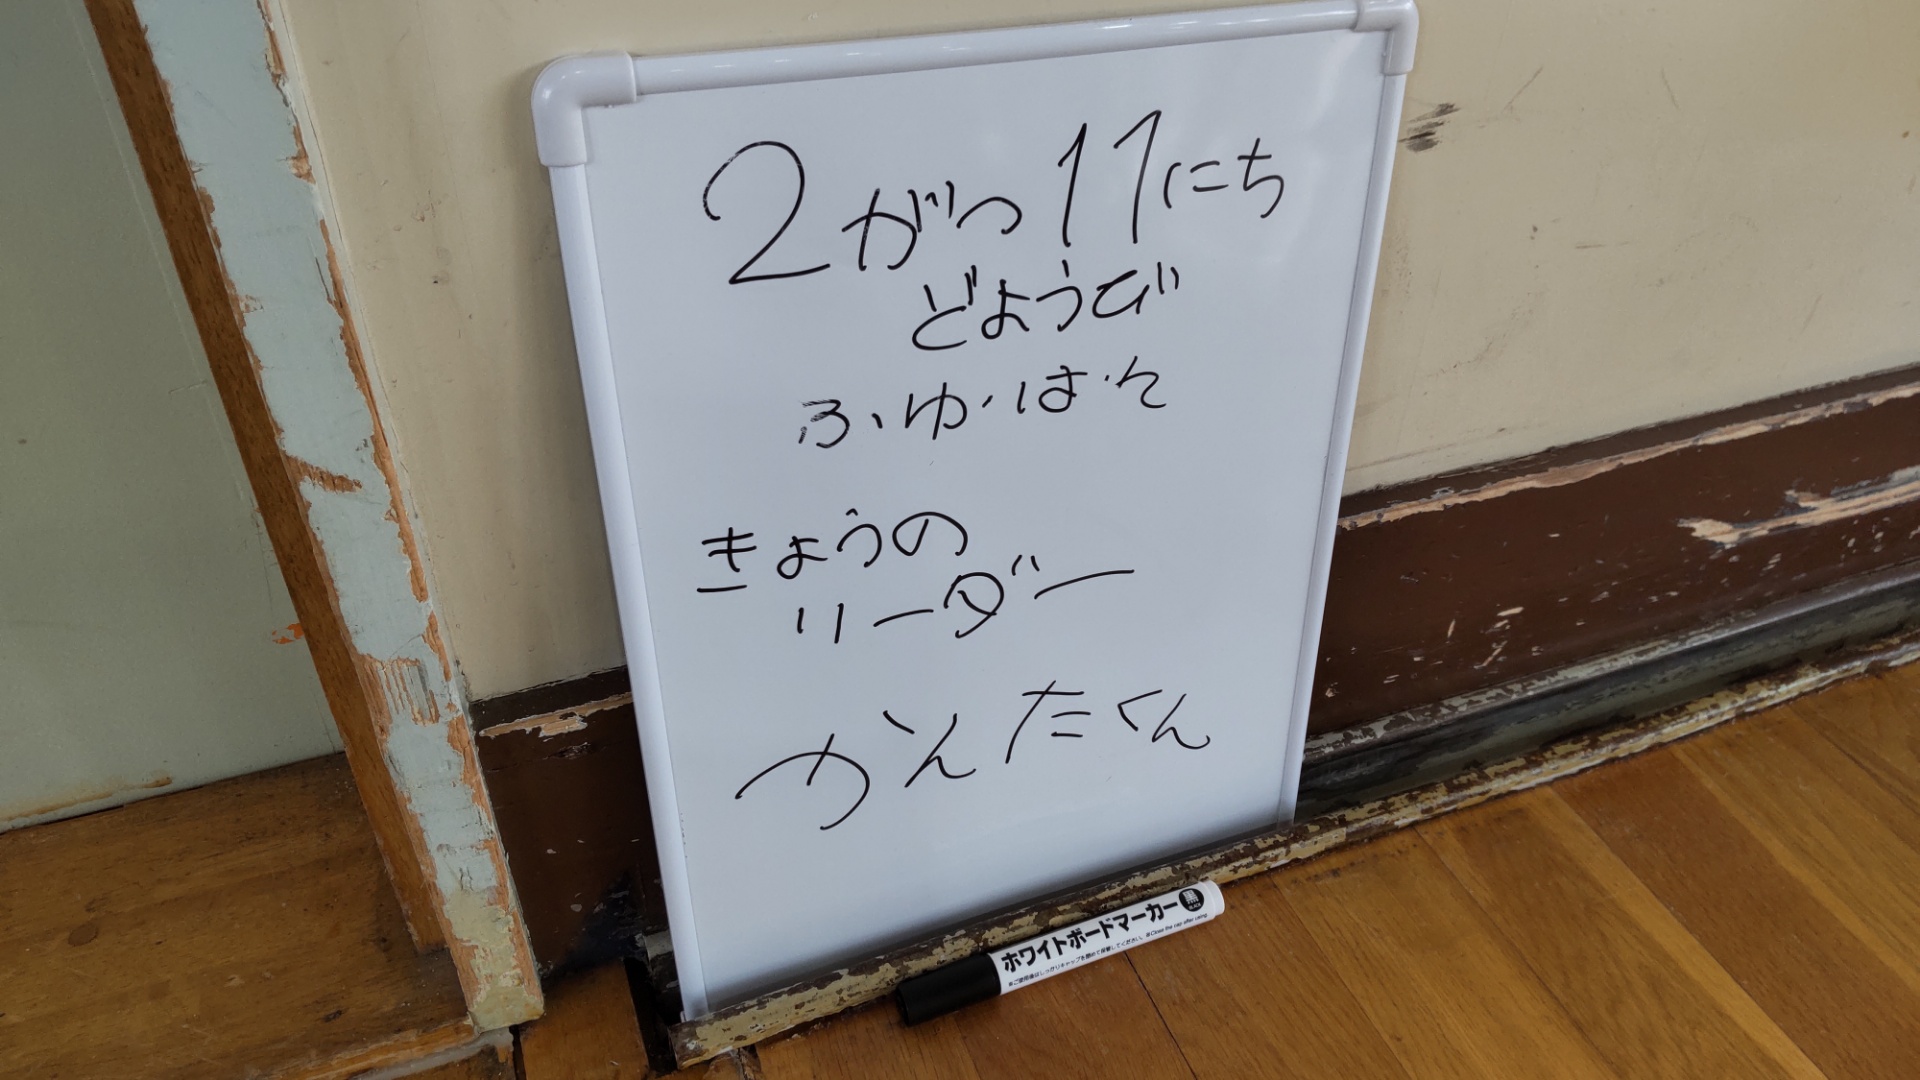 2がつ11にち
どようび
ふゆ・は・て
きょうの
リーダー
かんたくん
ホワイトボードマーカー 黒